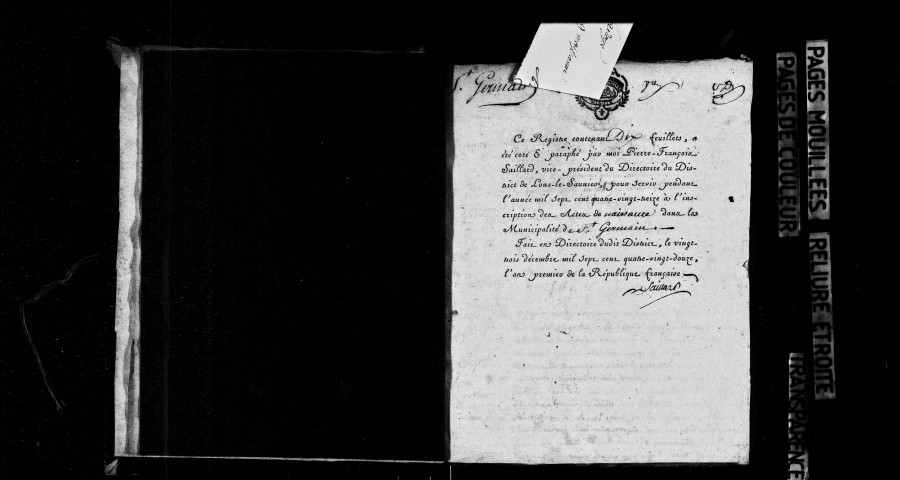 St. Germain
Ce Registre contenant Dix feuillets, a
été coté & paraphé par moi Pierre-François
Saillard, vice-président du Directoire du Dis-
trict de Lons-le-Saunier, pour servir pendant
l'année mil sept cent quatre-vingt-treize à l'ins-
cription des Actes de naissance dans la
Municipalité de St. Germain
Fait en Directoire dudit District, le vingt-
trois décembre mil sept cent quatre-vingt-douze,
l'an premier de la République française
Saillard
PAGES MOUILLEES
PAGES DE COULEUR
RELIURE ETROITE
TRANSPARENCE